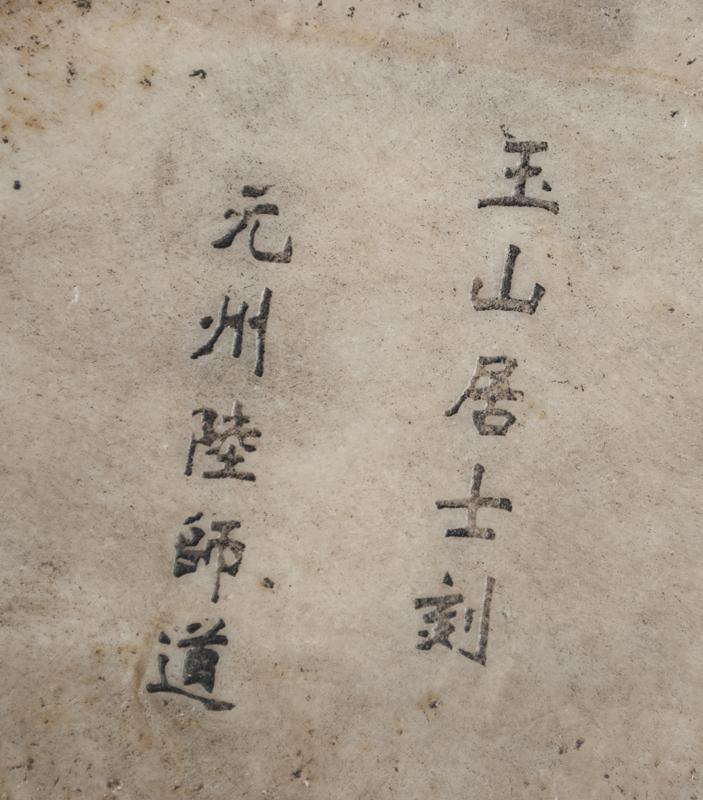 玉山居士刻
元州陸師道